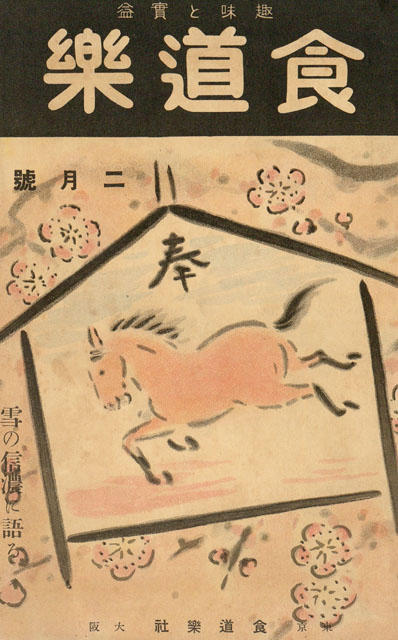 趣味と實益
食道樂
二月號
奉
雪の信濃に語る
東京 食道樂社 大阪